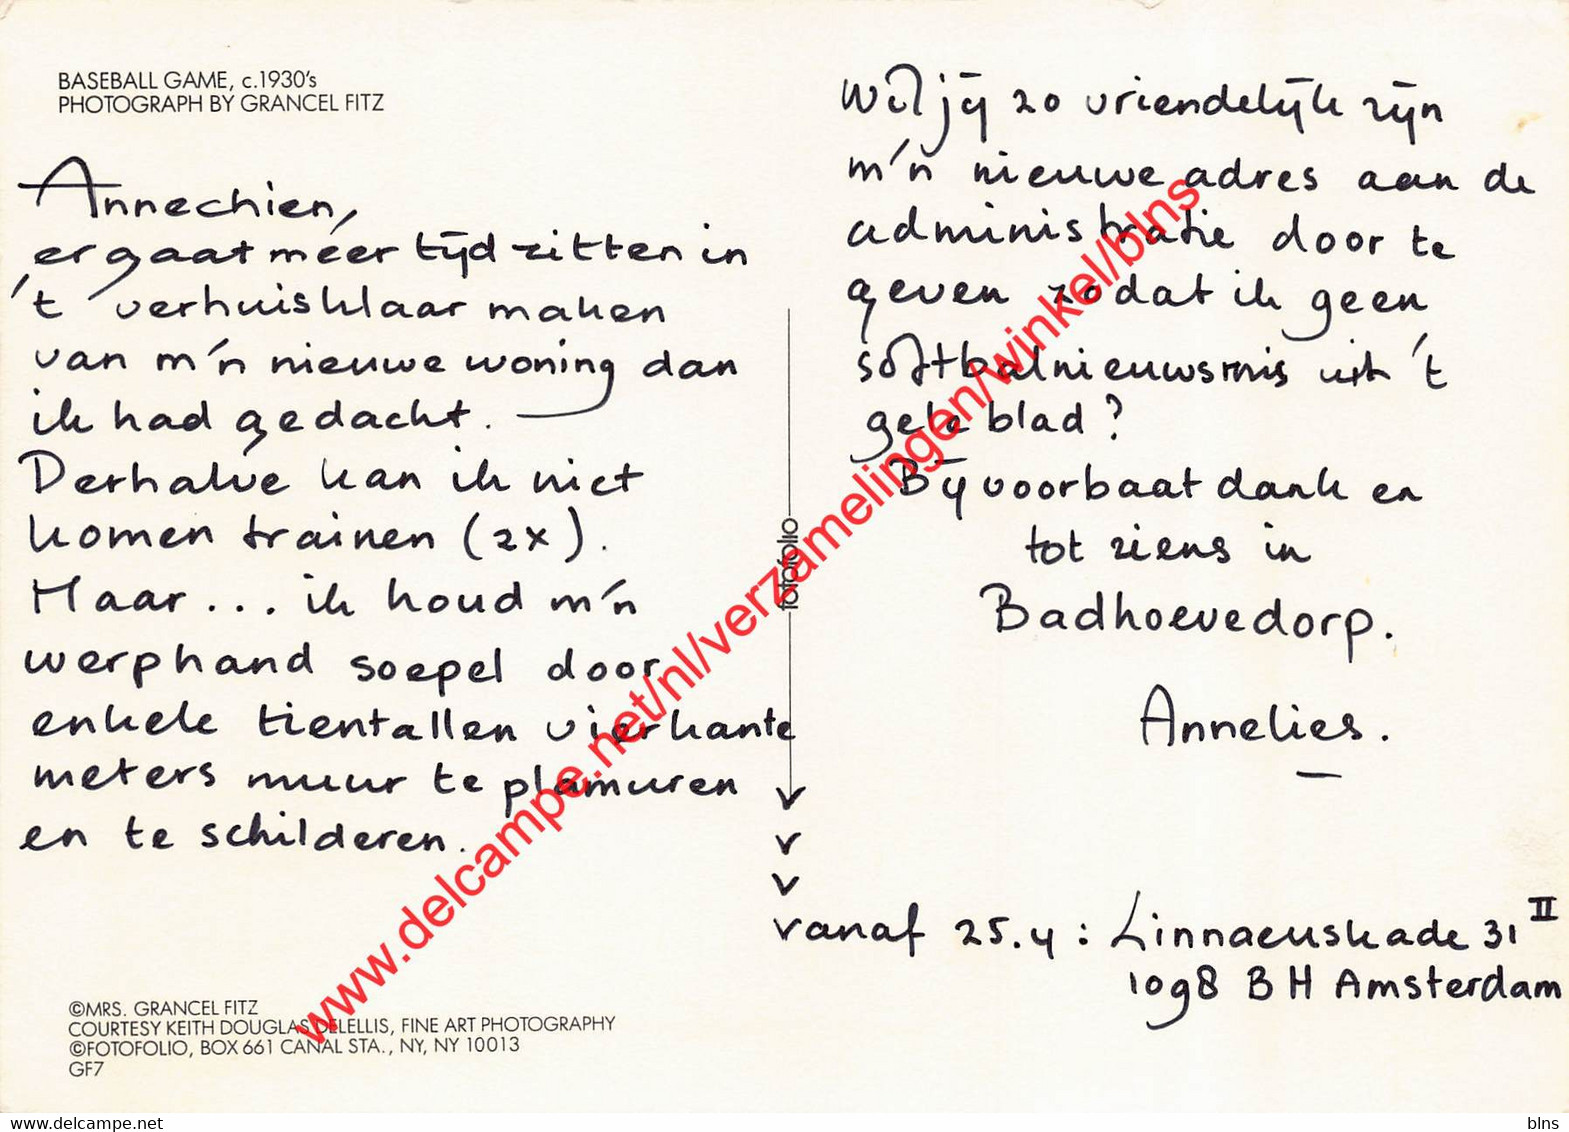 BASEBALL GAME, c.1930's
PHOTOGRAPH BY GRANCEL FITZ
Annechien,
er gaat méér tijd zitten in
't verhuisklaar maken
van m'n nieuwe woning dan
ik had gedacht.
Derhalve kan ik niet
komen trainen (2x).
Maar... ik houd m'n
werphand soepel door
enkele tientallen vierkante
meters muur te plamuren
en te schilderen.
Wil jij zo vriendelijk zijn
m'n nieuwe adres aan de
administratie door te
geven zodat ik geen
softbalnieuws mis uit 't
gele blad?
Bij voorbaat dank en
tot ziens in
Badhoevedorp.
Annelies.
vanaf 25.4: Linnaeuskade 31 II
1098 BH Amsterdam
fotofolio
©MRS. GRANCEL FITZ
COURTESY KEITH DOUGLAS DELELLIS, FINE ART PHOTOGRAPHY
©FOTOFOLIO, BOX 661 CANAL STA., NY, NY 10013
GF7
www.delcampe.net/nl/verzamelingen/winkel/blns
Uitsluitend voor delcampe.net
blns